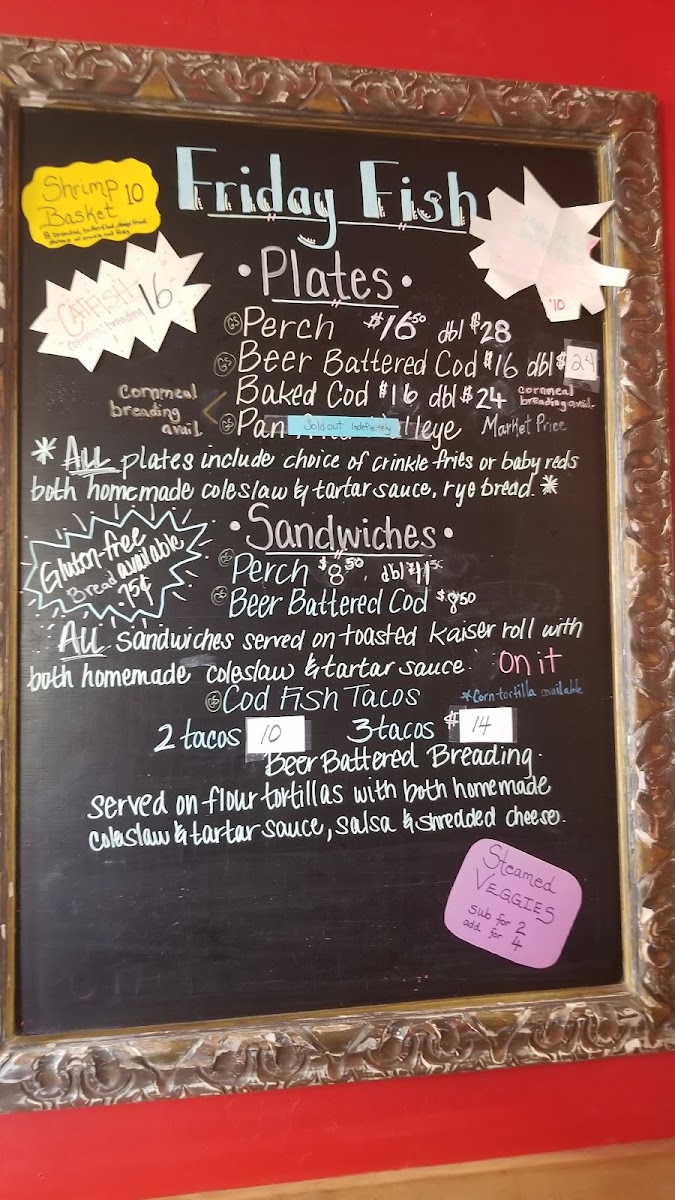 Friday Fish
Shrimp 10
Basket
CATFISH 16
cornmeal breading
'10
• Plates •
GF Perch $16.50 dbl $28
GF Beer Battered Cod $16 dbl $24
Baked Cod $16 dbl $24 cornmeal breading avail.
Cornmeal
breading
avail.
GF Pan Sold out Indefinitely lleye Market Price
* ALL plates include choice of crinkle fries or baby reds
both homemade coleslaw & tartar sauce, rye bread. *
• Sandwiches •
Gluten-free
Bread available
75¢
GF Perch $8.50, dbl $11.50
GF Beer Battered Cod $8.50
ALL sandwiches served on toasted kaiser roll with
both homemade coleslaw & tartar sauce on it
GF Cod Fish Tacos *Corn tortilla available
2 tacos 10 3 tacos $14
Beer Battered Breading.
served on flour tortillas with both homemade
coleslaw & tartar sauce, salsa & shredded cheese.
Steamed
VEGGIES
sub for 2
add for 4